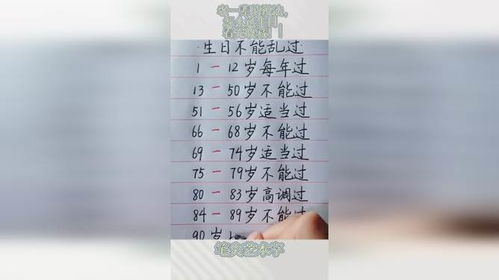 生日不能乱过
1 — 12岁每年过
13 — 50岁不能过
51 — 56岁适当过
66 — 68岁不能过
69 — 74岁适当过
75 — 79岁不能过
80 — 83岁高调过
84 — 89岁不能过
90岁